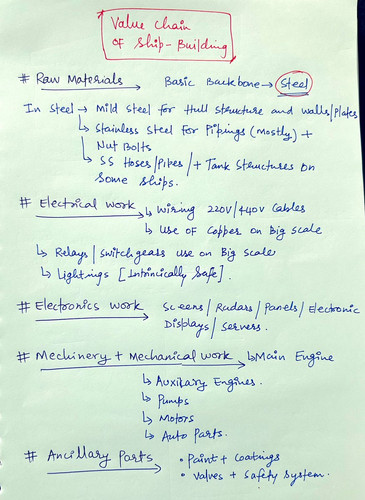 Value Chain
OF Ship-Building
# Raw Materials → Basic Backbone → Steel
In Steel → Mild Steel for Hull structure and walls/Plates
↳ Stainless Steel for Pipings (mostly) +
Nut Bolts
↳ SS Hoses/Pipes/+ Tank Structures on
some ships.
# Electrical work ↳ Wiring 220V/440V Cables
↳ Use of Copper on Big scale
↳ Relays/switchgears use on Big scale
↳ Lightings [Intrincically Safe].
# Electronics work Sceens/Radars/Panels/Electronic
Displays/Servers.
# Mechinery + Mechanical work ↳ Main Engine
↳ Auxilary Engines.
↳ Pumps
↳ Motors
↳ Auto Parts.
# Ancillary Parts • Paint + Coatings
• Valves + Safety System.